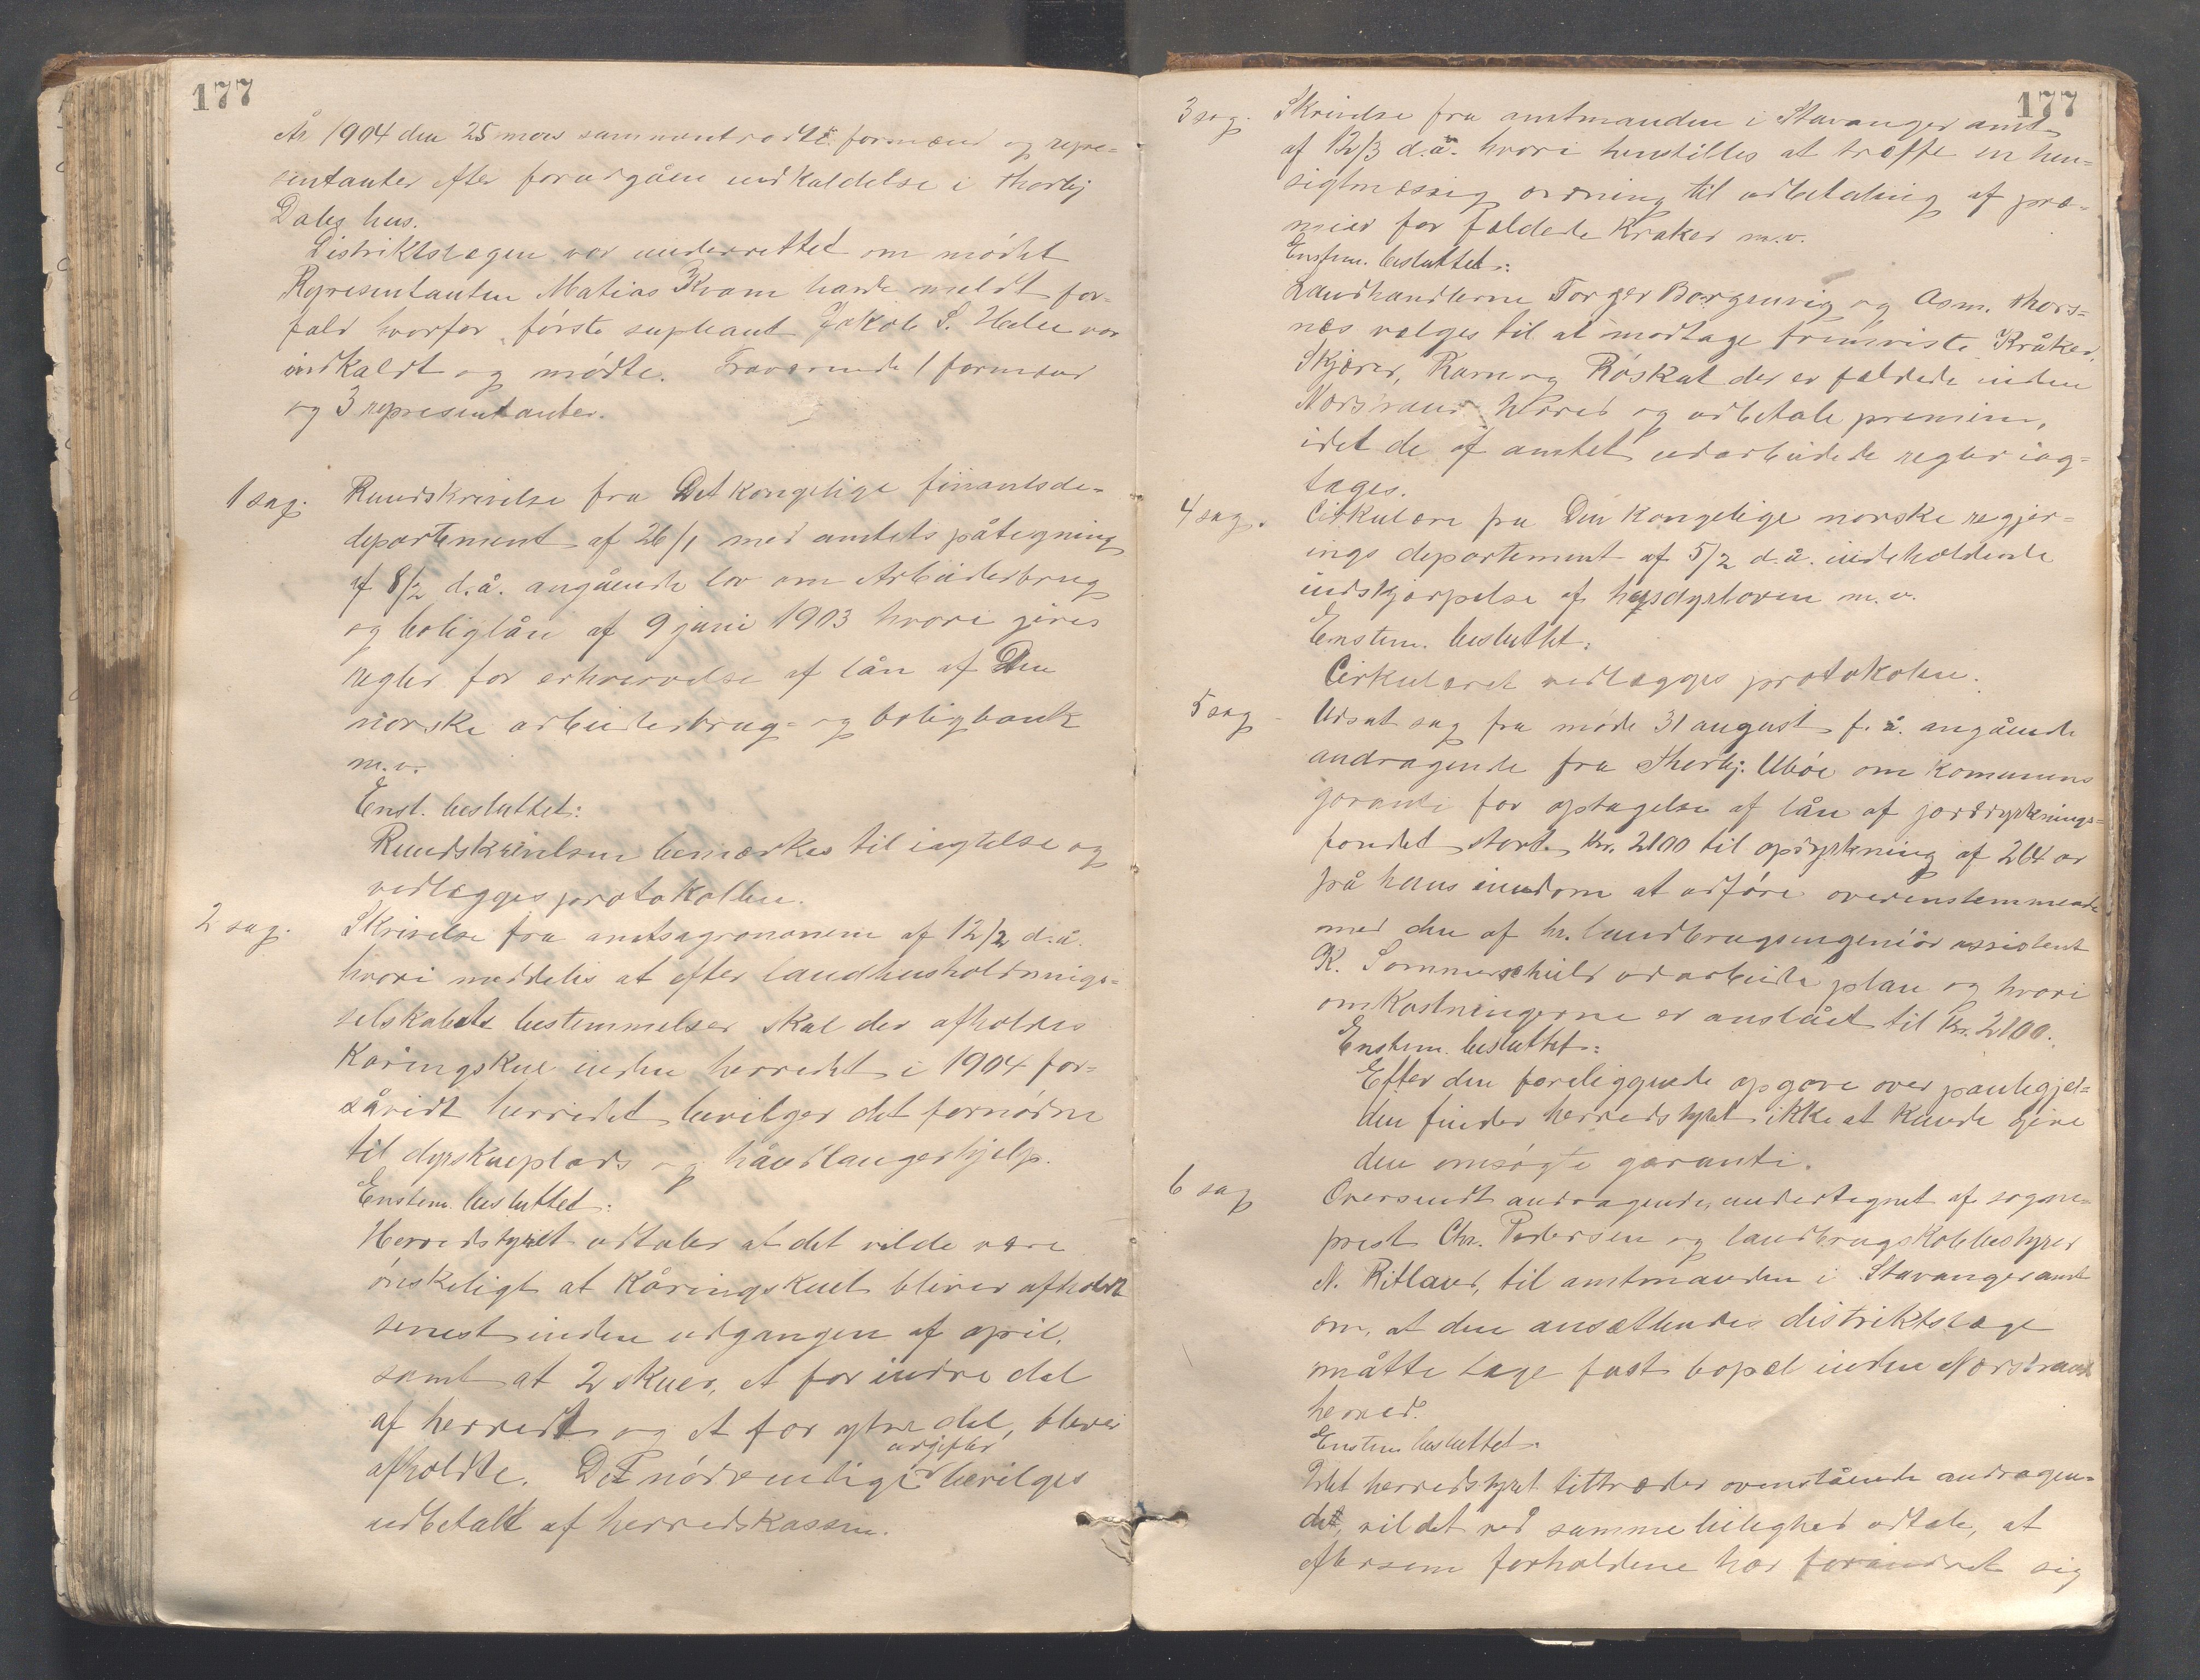 177
År 1904 den 25 mars sammentrådte formænd og repre-
sentanter efter forudgåen indkaldelse i Thorbj
Dales hus.
Distriktslægen var underrettet om mødet
Representanten Matias Kvam havde meldt for-
fald hvorfor første supleant Jakob S. Helle var
indkaldt og mødte. Fraværende 1 formand
og 3 representanter.
1 sag. Rundskrivelse fra Det kongelige finantsde-
departement af 26/1 med amtets påtegning
af 8/2 d.å. angående lov om Arbeiderbrug
og boliglån af 9 juni 1903 hvori gives
regler for erhvervelse af lån af Den
norske arbeiderbrug- og boligbank
m.v.
Enst. besluttet:
Rundskrivelsen bemærkes til iagtelse og
vedlægges protokollen.
2 sag. Skrivelse fra amtsagronomene af 12/2 d.å.
hvori meddeles at efter landhusholdnings-
selskabets bestemmelser skal der afholdes
Kåringskue inden herredet i 1904 for-
såvidt herredet bevilger det fornødne
til dyrskueplads og håndlangerhjelp.
Enstem. besluttet:
Herredstyret udtaler at det vilde være
ønskeligt at Kåringskuet bliver afholdt
senest inden udgangen af april,
samt at 2 skuer, et for indre del
af herredet og et for ytre del, bliver
afholdte. Det nødvendige udgifter bevilges
udbetalt af herredskassen.
177
3 sag. Skrivelse fra amtmanden i Stavanger amt
af 12/3 d.å. hvori henstilles at træffe en hen-
sigtmæssig ordning til udbetaling af præ-
mier for fældede Kraker m.v.
Enstem. besluttet:
Landhandlerne Torger Borgenvig og Asm. Thors-
næs vælges til at modtage fremviste Kråker,
Skjærer, Ravn og Røskat der er fældede inden
Norstrand herred og udbetale premien,
idet de af amtet udarbeidede regler iag-
tages.
4 sag. Cirkulære fra Den kongelige norske regjer-
ings departement af 5/2 d.å. indeholdende
indskjærpelse af husdyrloven m.v.
Enstem. besluttet:
Cirkulæret vedlægges protokolen.
5 sag Udsat sag fra møde 31 august f. å. angående
andragende fra Thorbj. Ubøe om Kommunens
garanti for optagelse af lån af jorddyrknings-
fondet stort kr. 2100 til opdyrkning af 214 ar
på hans eiendom at udføre overenstemmende
med den af hr. landbrugsingeniør assistent
K. Sommerschield udarbeide plan og hvori
omkostningerne er anslået til kr. 2100.
Enstem. besluttet:
Efter den foreliggende opgave over pantegjel-
den finder herredstyret ikke at kunde give
den omsøgte garanti.
6 sag Oversendt andragende, undertegnet af sogne-
prest Chr. Pedersen og landbrugskolebestyrer
N. Ritland, til amtmanden i Stavanger amt
om, at den ansættendes distriktslæge
måtte tage fast bopæl inden Norstrand
herred.
Enstem besluttet:
Idet herredstyret tiltræder ovenstående andragen-
det, vil det ved samme leilighed udtale, at
eftersom forholdene har forandret sig